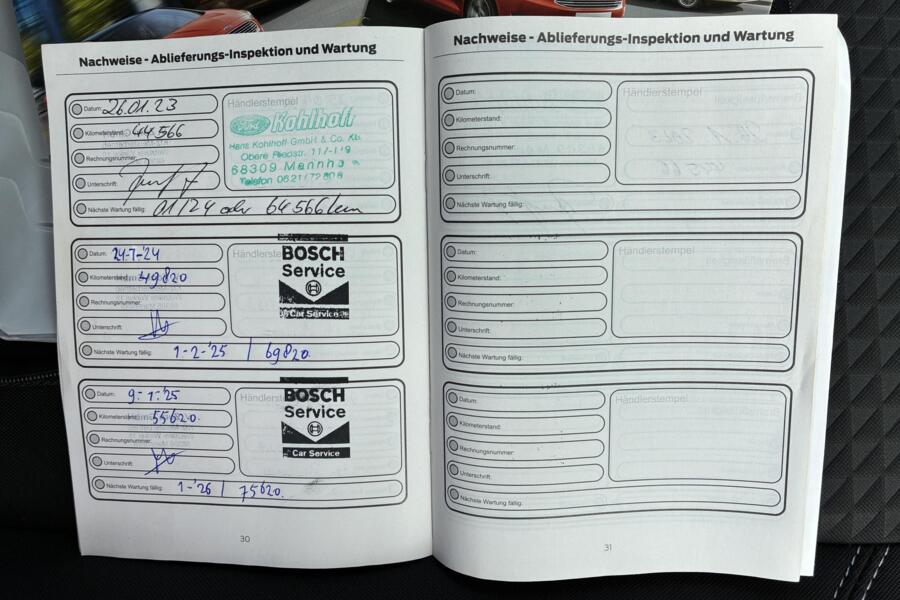 Nachweise - Ablieferungs-Inspektion und Wartung
Datum: 26.01.23
Kilometerstand: 44566
Rechnungsnummer:
Unterschrift:
Nächste Wartung fällig: 01/24 oder 64566 km
Händlerstempel
Ford Kohlhoff
Hans Kohlhoff GmbH & Co. KG
Obere Riedstr. 117-119
68309 Mannh
Telefon 0621/72
Datum: 24-7-'24
Kilometerstand: 49820
Rechnungsnummer:
Unterschrift:
Nächste Wartung fällig: 1-2-'25 / 69820.
Händlerste
BOSCH
Service
Car Service
Datum: 9-1-'25
Kilometerstand: 55620.
Rechnungsnummer:
Unterschrift:
Nächste Wartung fällig: 1-'26 / 75620.
Händlers
BOSCH
Service
Car Service
30
Nachweise - Ablieferungs-Inspektion und Wartung
Datum:
Kilometerstand:
Rechnungsnummer:
Unterschrift:
Nächste Wartung fällig:
Händlerstempel
Datum:
Kilometerstand:
Rechnungsnummer:
Unterschrift:
Nächste Wartung fällig:
Händlerstempel
Datum:
Kilometerstand:
Rechnungsnummer:
Unterschrift:
Nächste Wartung fällig:
Händlerstempel
31